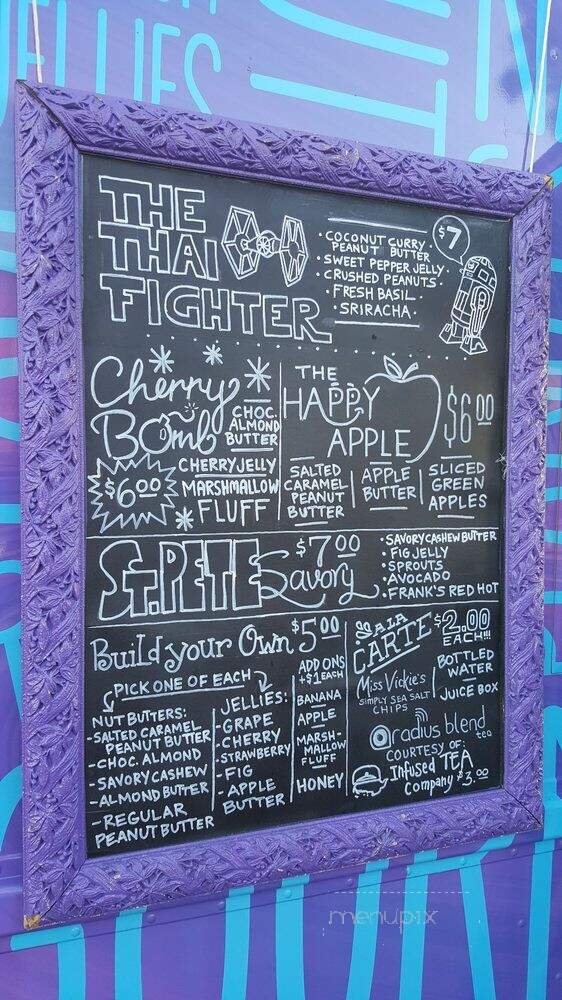 ELLIES
THE
THAI
FIGHTER
• COCONUT CURRY •
PEANUT BUTTER
• SWEET PEPPER JELLY •
• CRUSHED PEANUTS •
• FRESH BASIL •
• SRIRACHA •
$7
Cherry
Bomb
CHOC.
ALMOND
BUTTER
$6.00
CHERRY JELLY
MARSHMALLOW
FLUFF
THE
HAPPY
APPLE
$6.00
SALTED
CARAMEL
PEANUT
BUTTER
APPLE
BUTTER
SLICED
GREEN
APPLES
ST. PETE
Savory
$7.00
• SAVORY CASHEW BUTTER
• FIG JELLY
• SPROUTS
• AVOCADO
• FRANK'S RED HOT
Build your Own $5.00
PICK ONE OF EACH
NUT BUTTERS:
- SALTED CARAMEL
PEANUT BUTTER
- CHOC. ALMOND
- SAVORY CASHEW
- ALMOND BUTTER
- REGULAR
PEANUT BUTTER
JELLIES:
- GRAPE
- CHERRY
- STRAWBERRY
- FIG
- APPLE
BUTTER
ADD ONS
+$1 EACH
BANANA
APPLE
MARSH-
MALLOW
FLUFF
HONEY
A LA
CARTE
$2.00
EACH!!!
Miss Vickie's
SIMPLY SEA SALT
CHIPS
BOTTLED
WATER
JUICE BOX
radius blend
tea
COURTESY OF:
Infused TEA
Company $3.00
menupix